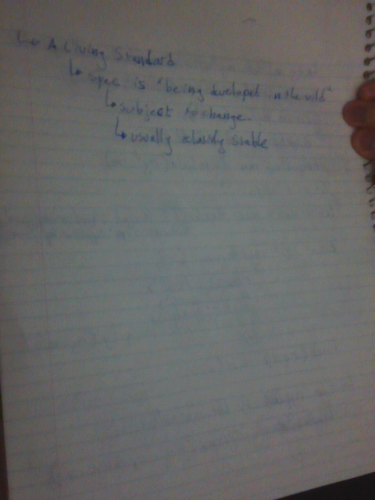 ↳ A Living Standard
↳ spec is "being developed in the wild"
↳ subject to change.
↳ usually relatively stable